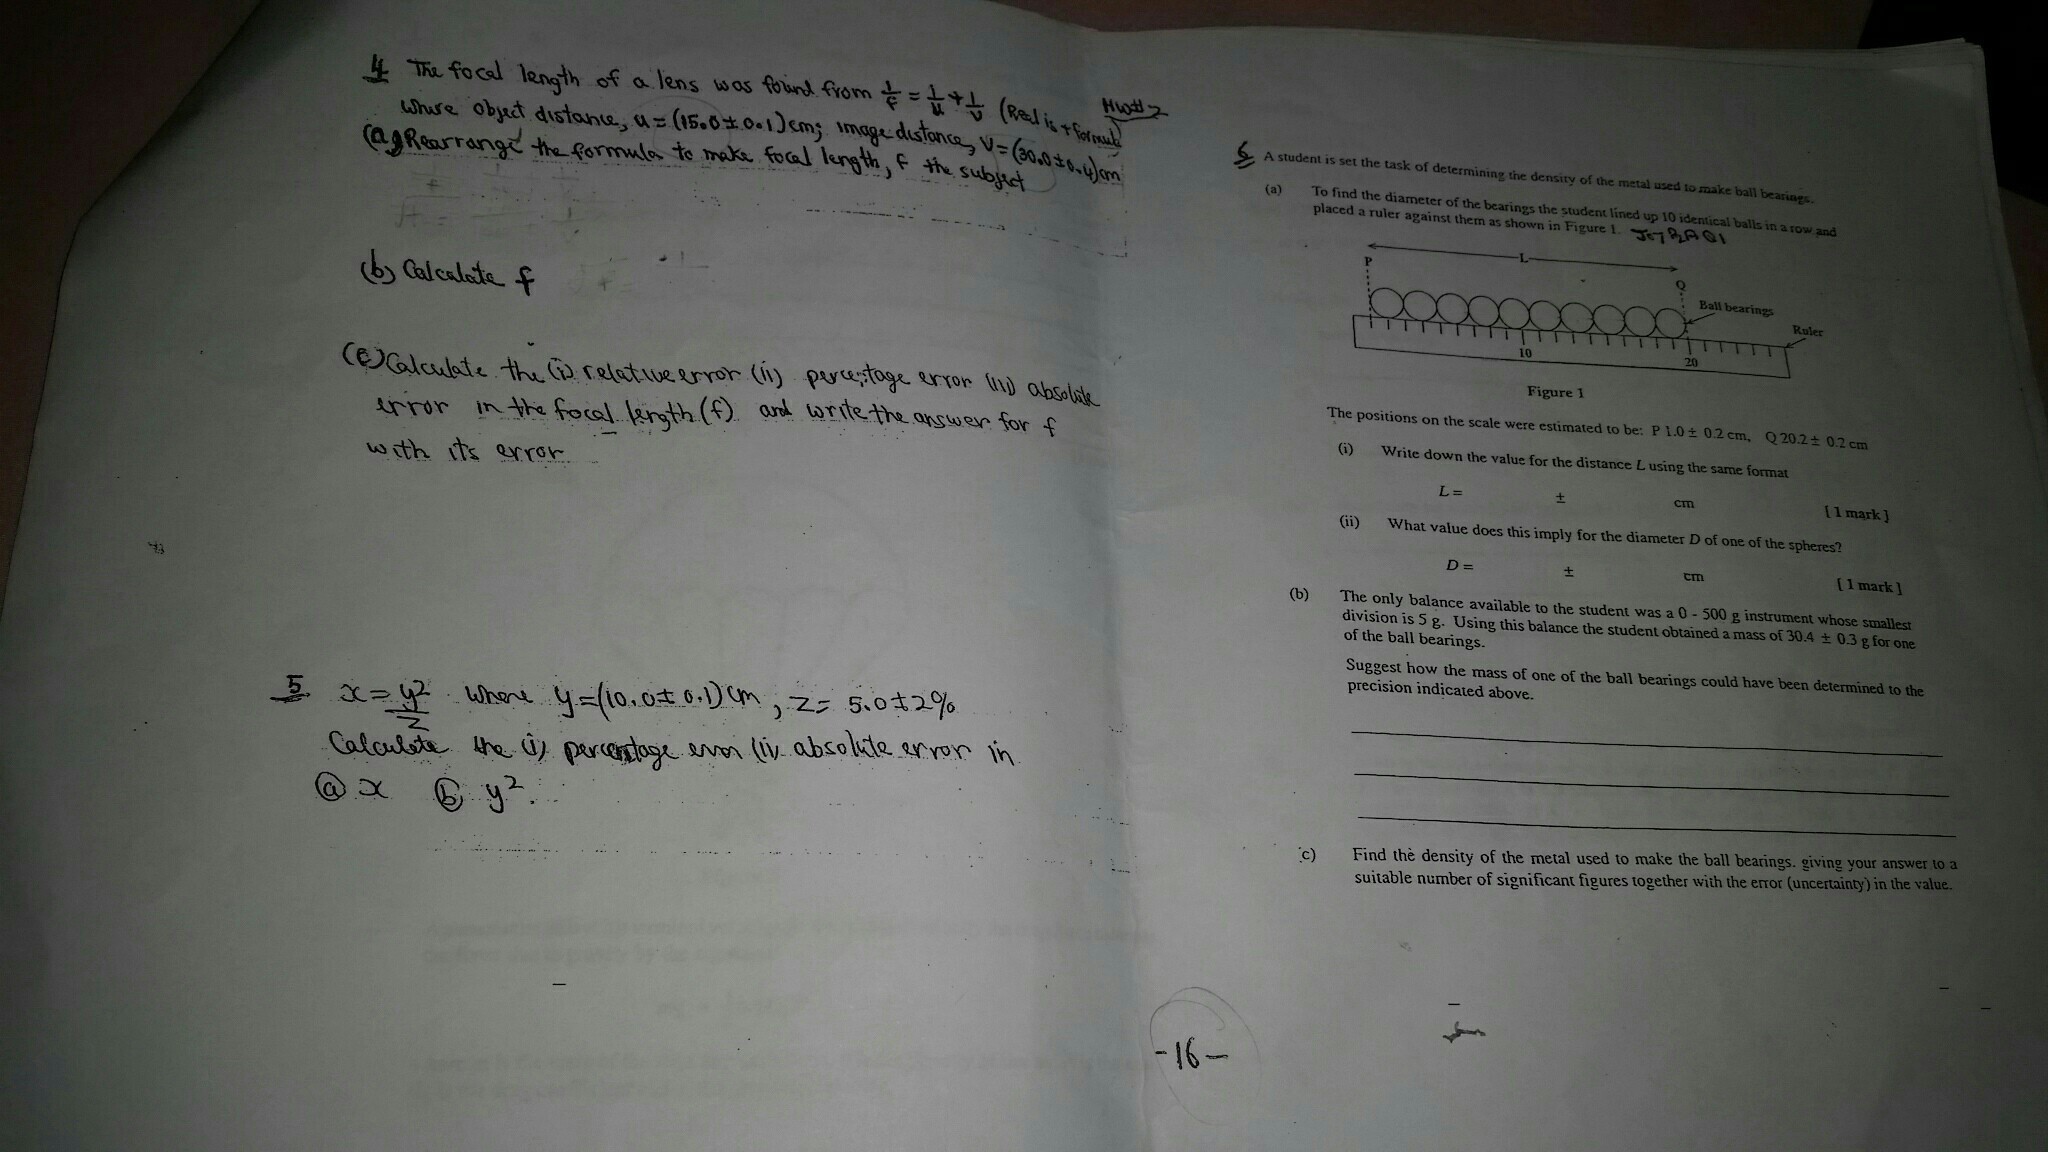 HW#2
4 The focal length of a lens was found from 1/f = 1/u + 1/v (Real is + formula)
where object distance, u = (15.0 ± 0.1) cm; image distance, V = (30.0 ± 0.4) cm
(a) Rearrange the formula to make focal length, f the subject
(b) Calculate f
(c) Calculate the (i) relative error (ii) percentage error (iii) absolute
error in the focal length (f) and write the answer for f
with its error
5 x = y²/z where y = (10.0 ± 0.1) cm, z = 5.0 ± 2%
Calculate the (i) percentage error (ii) absolute error in
(a) x (b) y².
6 A student is set the task of determining the density of the metal used to make ball bearings.
(a) To find the diameter of the bearings the student lined up 10 identical balls in a row and
placed a ruler against them as shown in Figure 1.
L
P
Q
Ball bearings
Ruler
10
20
Figure 1
The positions on the scale were estimated to be: P 1.0 ± 0.2 cm, Q 20.2 ± 0.2 cm
(i) Write down the value for the distance L using the same format
L = ± cm [1 mark]
(ii) What value does this imply for the diameter D of one of the spheres?
D = ± cm [1 mark]
(b) The only balance available to the student was a 0 - 500 g instrument whose smallest
division is 5 g. Using this balance the student obtained a mass of 30.4 ± 0.3 g for one
of the ball bearings.
Suggest how the mass of one of the ball bearings could have been determined to the
precision indicated above.
c) Find the density of the metal used to make the ball bearings. giving your answer to a
suitable number of significant figures together with the error (uncertainty) in the value.
-16-